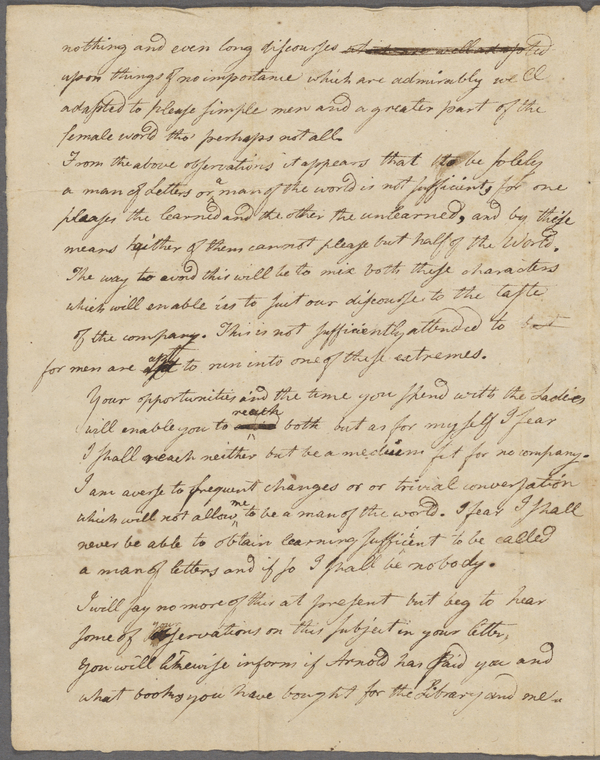 nothing and even long discourses which are well adapted
upon things of no importance which are admirably well
adapted to please simple men and a greater part of the
female world tho' perhaps not all.
From the above observations it appears that to be solely
a man of letters or a man of the world is not sufficient, for one
pleases the learned and the other the unlearned, and by these
means neither of them cannot please but half of the World.
The way to avoid this will be to mix both these characters
which will enable us to suit our discourse to the taste
of the company. This is not sufficiently attended to
for men are apt to run into one of these extremes.
Your opportunities and the time you spend with the Ladies
will enable you to reach both but as for myself I fear
I shall reach neither but be a medium fit for no company.
I am averse to frequent changes or or trivial conversation
which will not allow me to be a man of the world. I fear I shall
never be able to obtain learning sufficient to be called
a man of letters and if so I shall be nobody.
I will say no more of this at present but beg to hear
some of your observations on this subject in your letter,
you will likewise inform if Arnold has Paid you and
what books you have bought for the Library and me